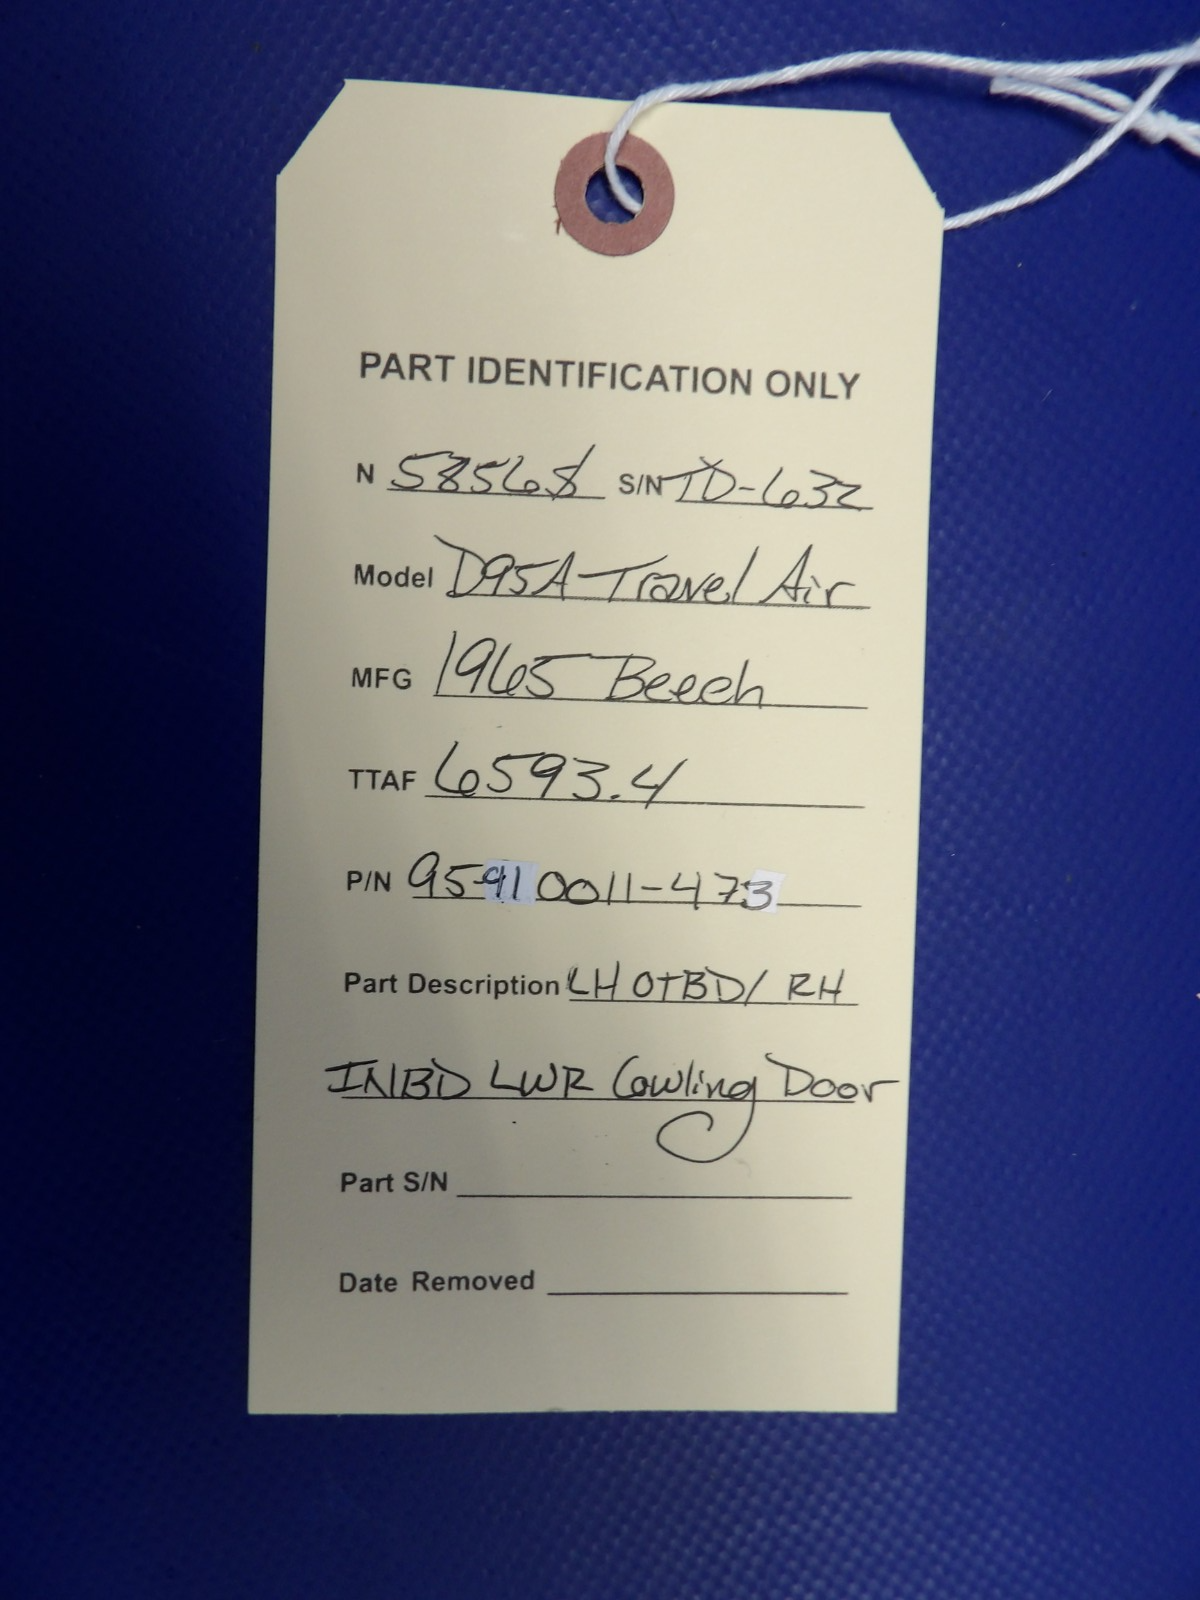 PART IDENTIFICATION ONLY
N 5856S S/N TD-632
Model D95A-Travel Air
MFG 1965 Beech
TTAF 6593.4
P/N 95-910011-473
Part Description LH OTBD/ RH
INBD LWR Cowling Door
Part S/N
Date Removed